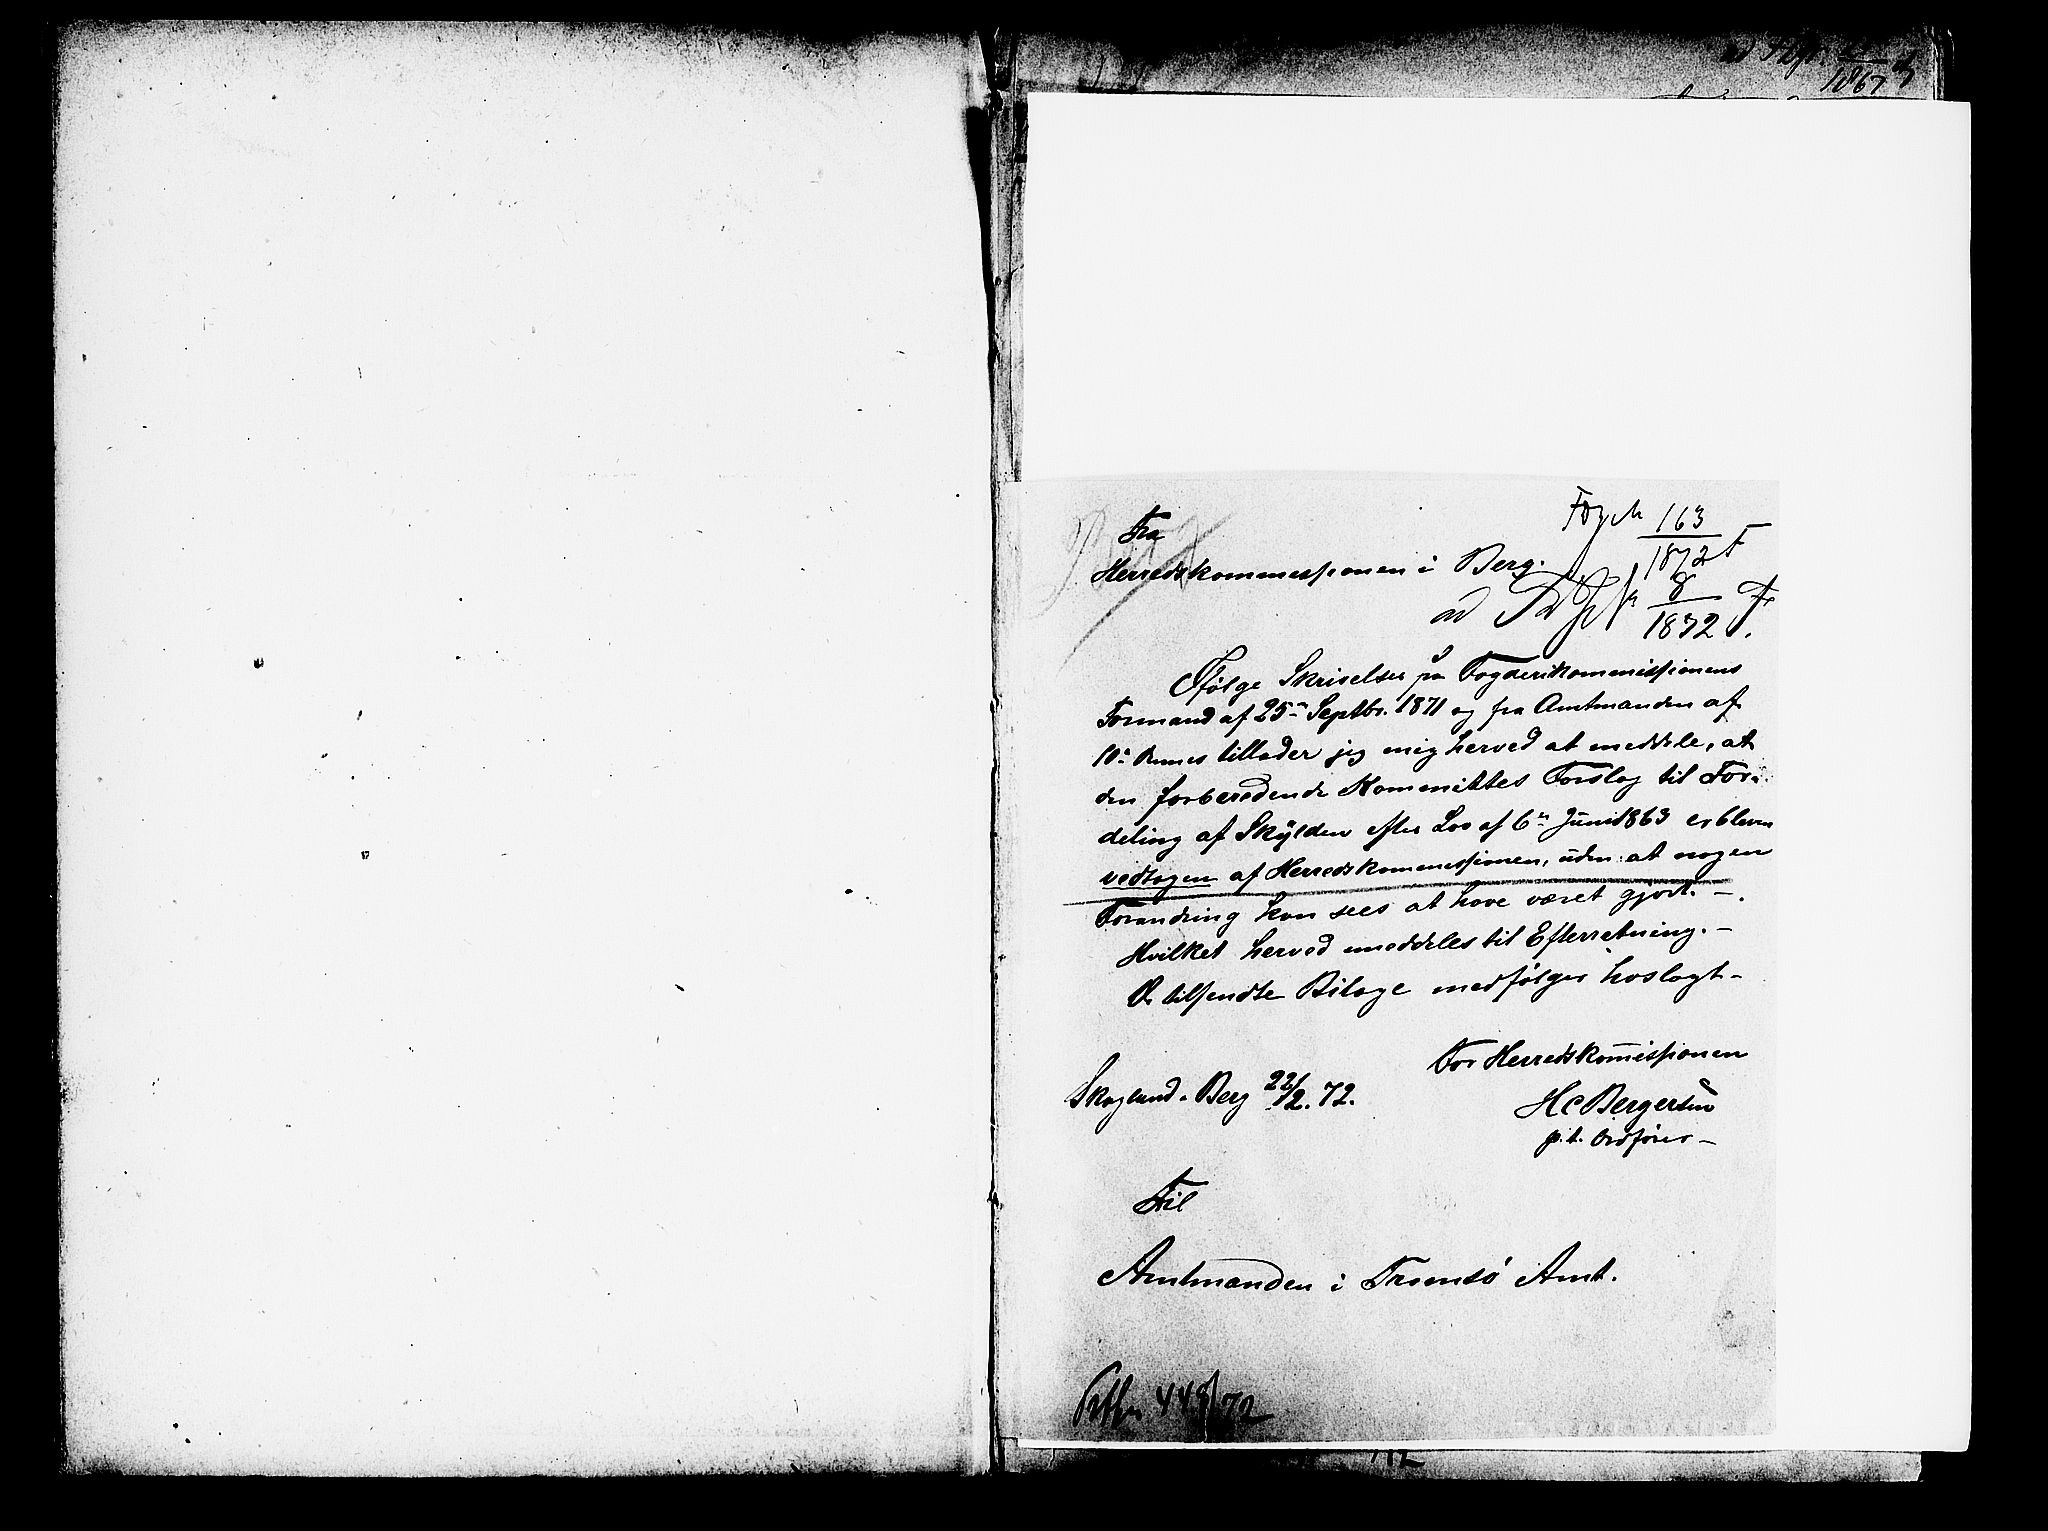 1867
163
1872
Fra
Herredskommessionen i Berg.
ad
8
1872
Ifølge Skrivelser fra Fogderikommissionens
Formand af 25de Septbr. 1871 og fra Amtmanden af
10de Dennes tillader jeg mig herved at meddele, at
den forberedende Kommittes Forslag til For-
deling af Skylden efter Lov af 6te Juni 1863 er bleven
vedtagen af Herredskommessionen, uden at nogen
Forandring kan sees at have været gjort. –
Hvilket herved meddeles til Efterretning. –
De tilsendte Bilage medfølger hoslagt –
For Herredskommissionen
Skogland i Berg 22/2. 72.
HC Bergersen
p.t. Ordfører –
Til
Amtmanden i Tromsø Amt.
448/72